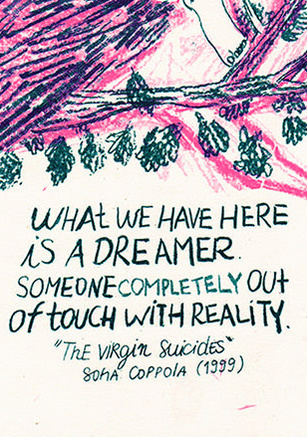 WHAT WE HAVE HERE
iS A DREAMER.
SOMEONE COMPLETELY OUt
Of tOUCH WitH REALitY.
"ThE VIRgin Suicides"
SOfiA COPPOLA (1999)